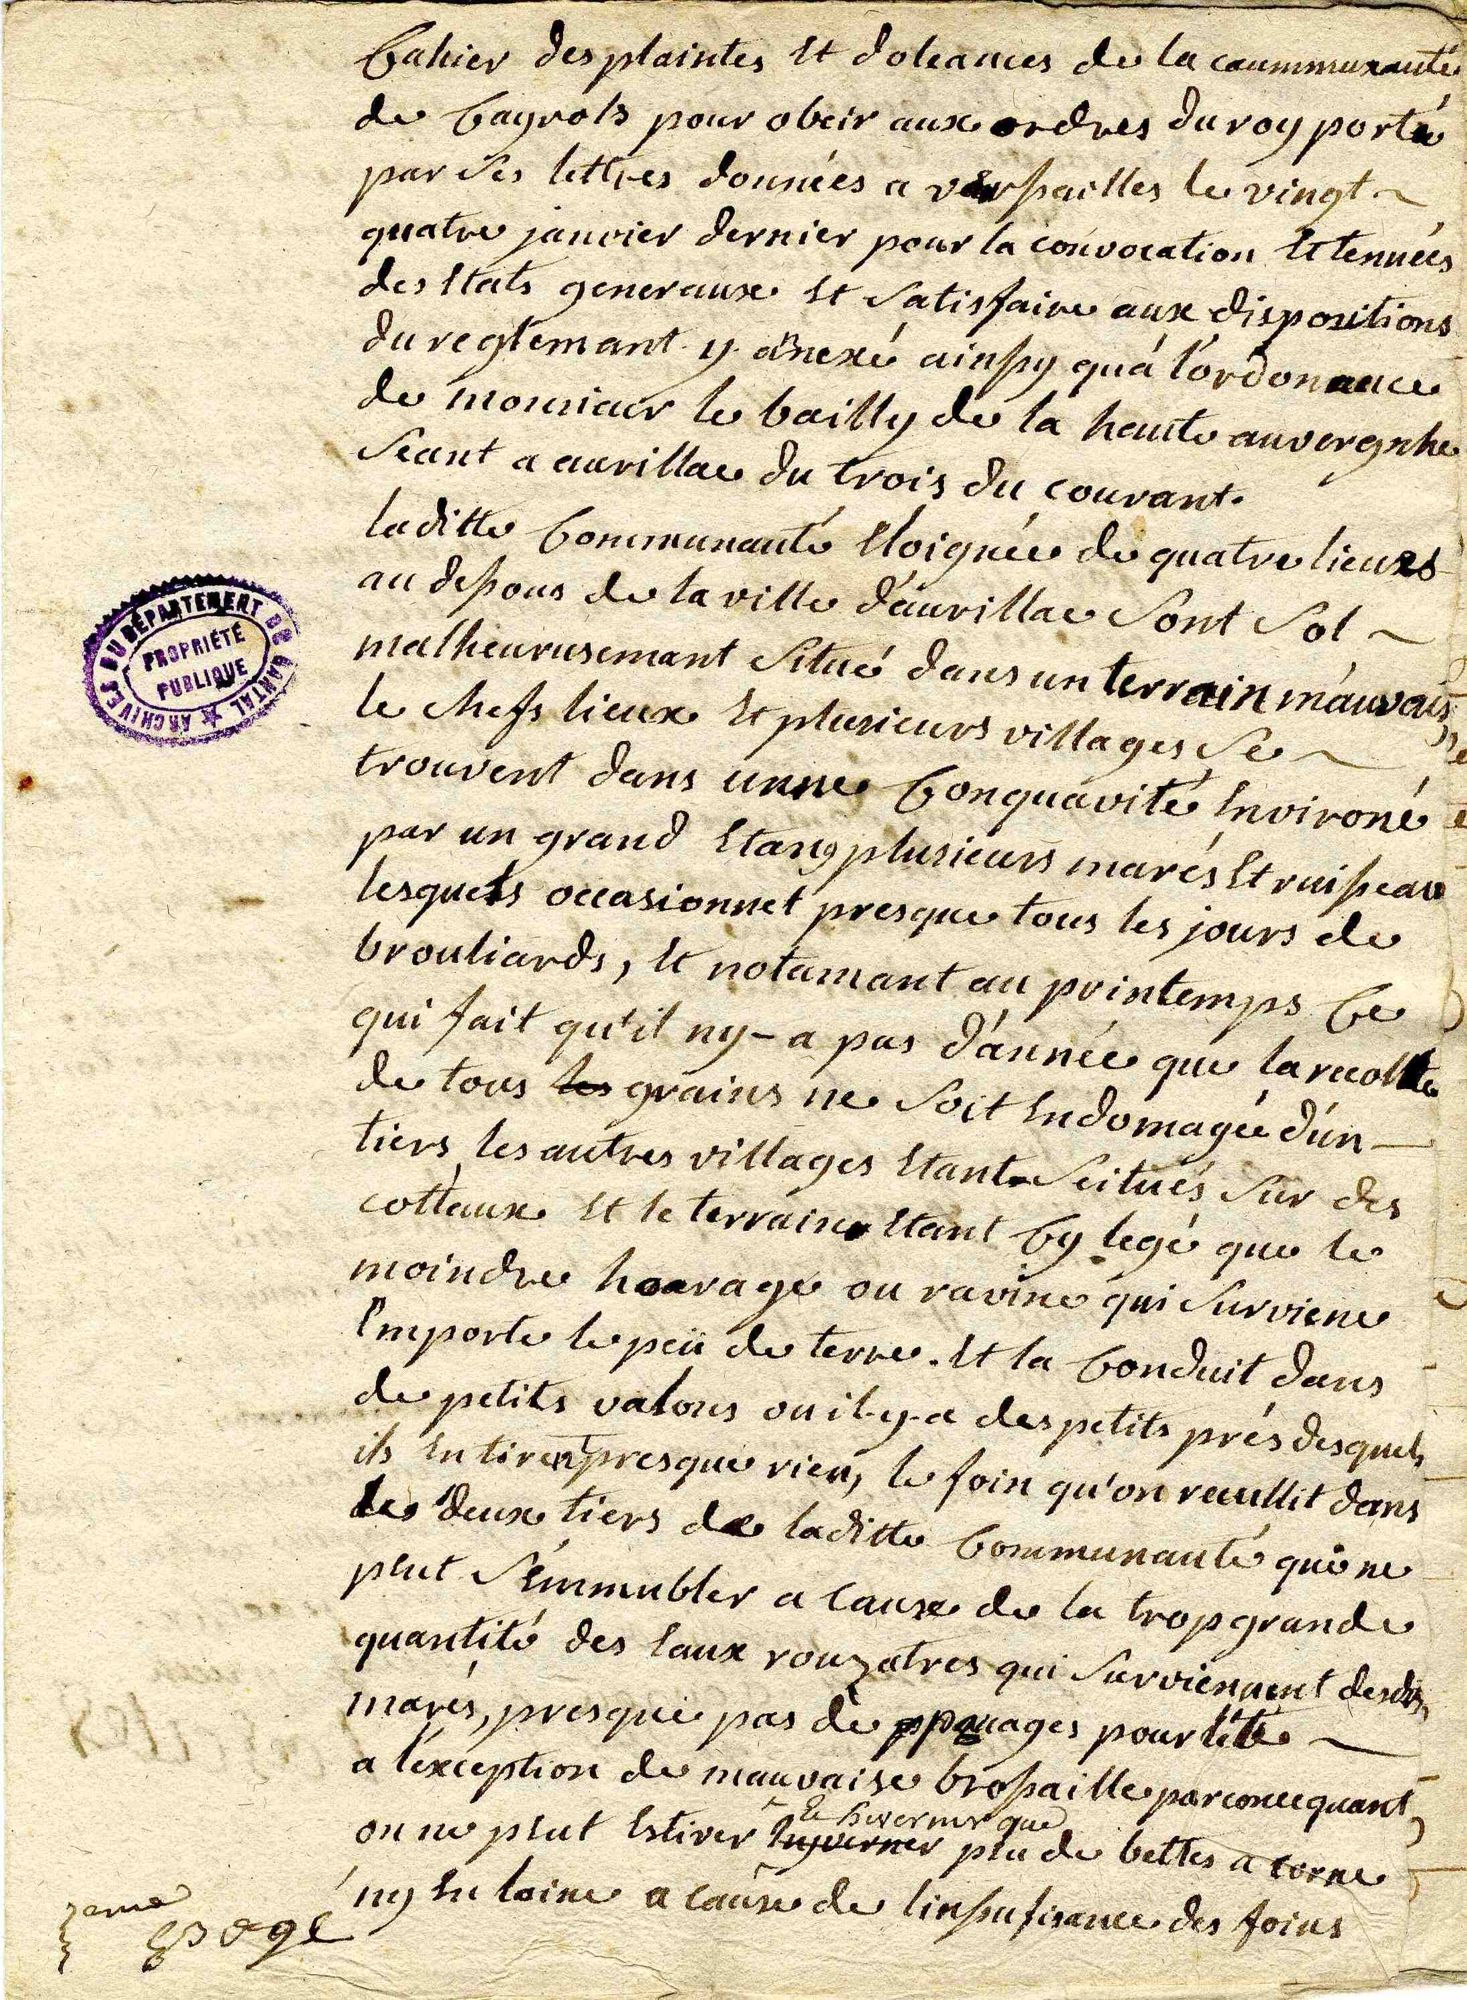 Cahier des plaintes Et doleances de la caummunauté
de Cayrols pour obeir aux ordres du roy porté
par ses lettres données a versailles le vingt
quatre janvier dernier pour la convocation Et tenuées
des Etats generaux Et satisfaire aux dispositions
du reglemant y annexé ainsy qu'a l'ordonance
de monsieur le bailly de la haute auvergnhe
seant a aurillac du trois du courant.
laditte Communauté Eloignée de quatre lieues
au desous de la ville d'aurillac sont sol
malheurusemant situé dans un terrain mauvais,
le chefs lieux Et plusieurs villages se
trouvent dans unne Conquavité Environé
par un grand Etang plusieurs marés Et ruiseau
lesquels occasionnet presque tous les jours de
brouliards, Et notamant au printemps Ce
qui fait qu'il ny-a pas d'année que la recolte
de tous les grains ne soit Endomagée d'un
tiers, les autres villages Etant scitués sur des
cottaux Et le terrain Etant Cy legé que le
moindre hoarage ou ravine qui surviene
Emporte le peü de terre. Et la Conduit dans
de petits valons ou il-y-a des petits prés desquels
ils En tirent presque rien, le foin qu'on receullit dans
les deux tiers de laditte Communauté quo ne
peut s'Emmubler a cause de la trop grande
quantité des Eaux rouzatres qui surviennent desdits
marés, presque pas de pquages pour l'été
a l'exception de mauvaise brosaille par concequant,
on ne peut Estiver Et hiverner que peu de bettes a corne
ny En laine a cause de l'insufisance des foins
1ere page
ARCHIVES DU DÉPARTEMENT DU CANTAL
PROPRIÉTÉ
PUBLIQUE